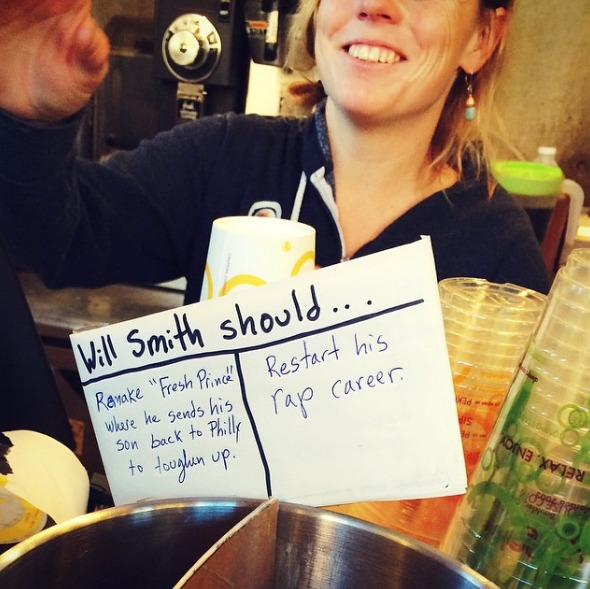 Will Smith should...
Remake "Fresh Prince"
where he sends his
son back to Philly
to toughen up.
Restart his
rap career.
RELAX. ENJOY